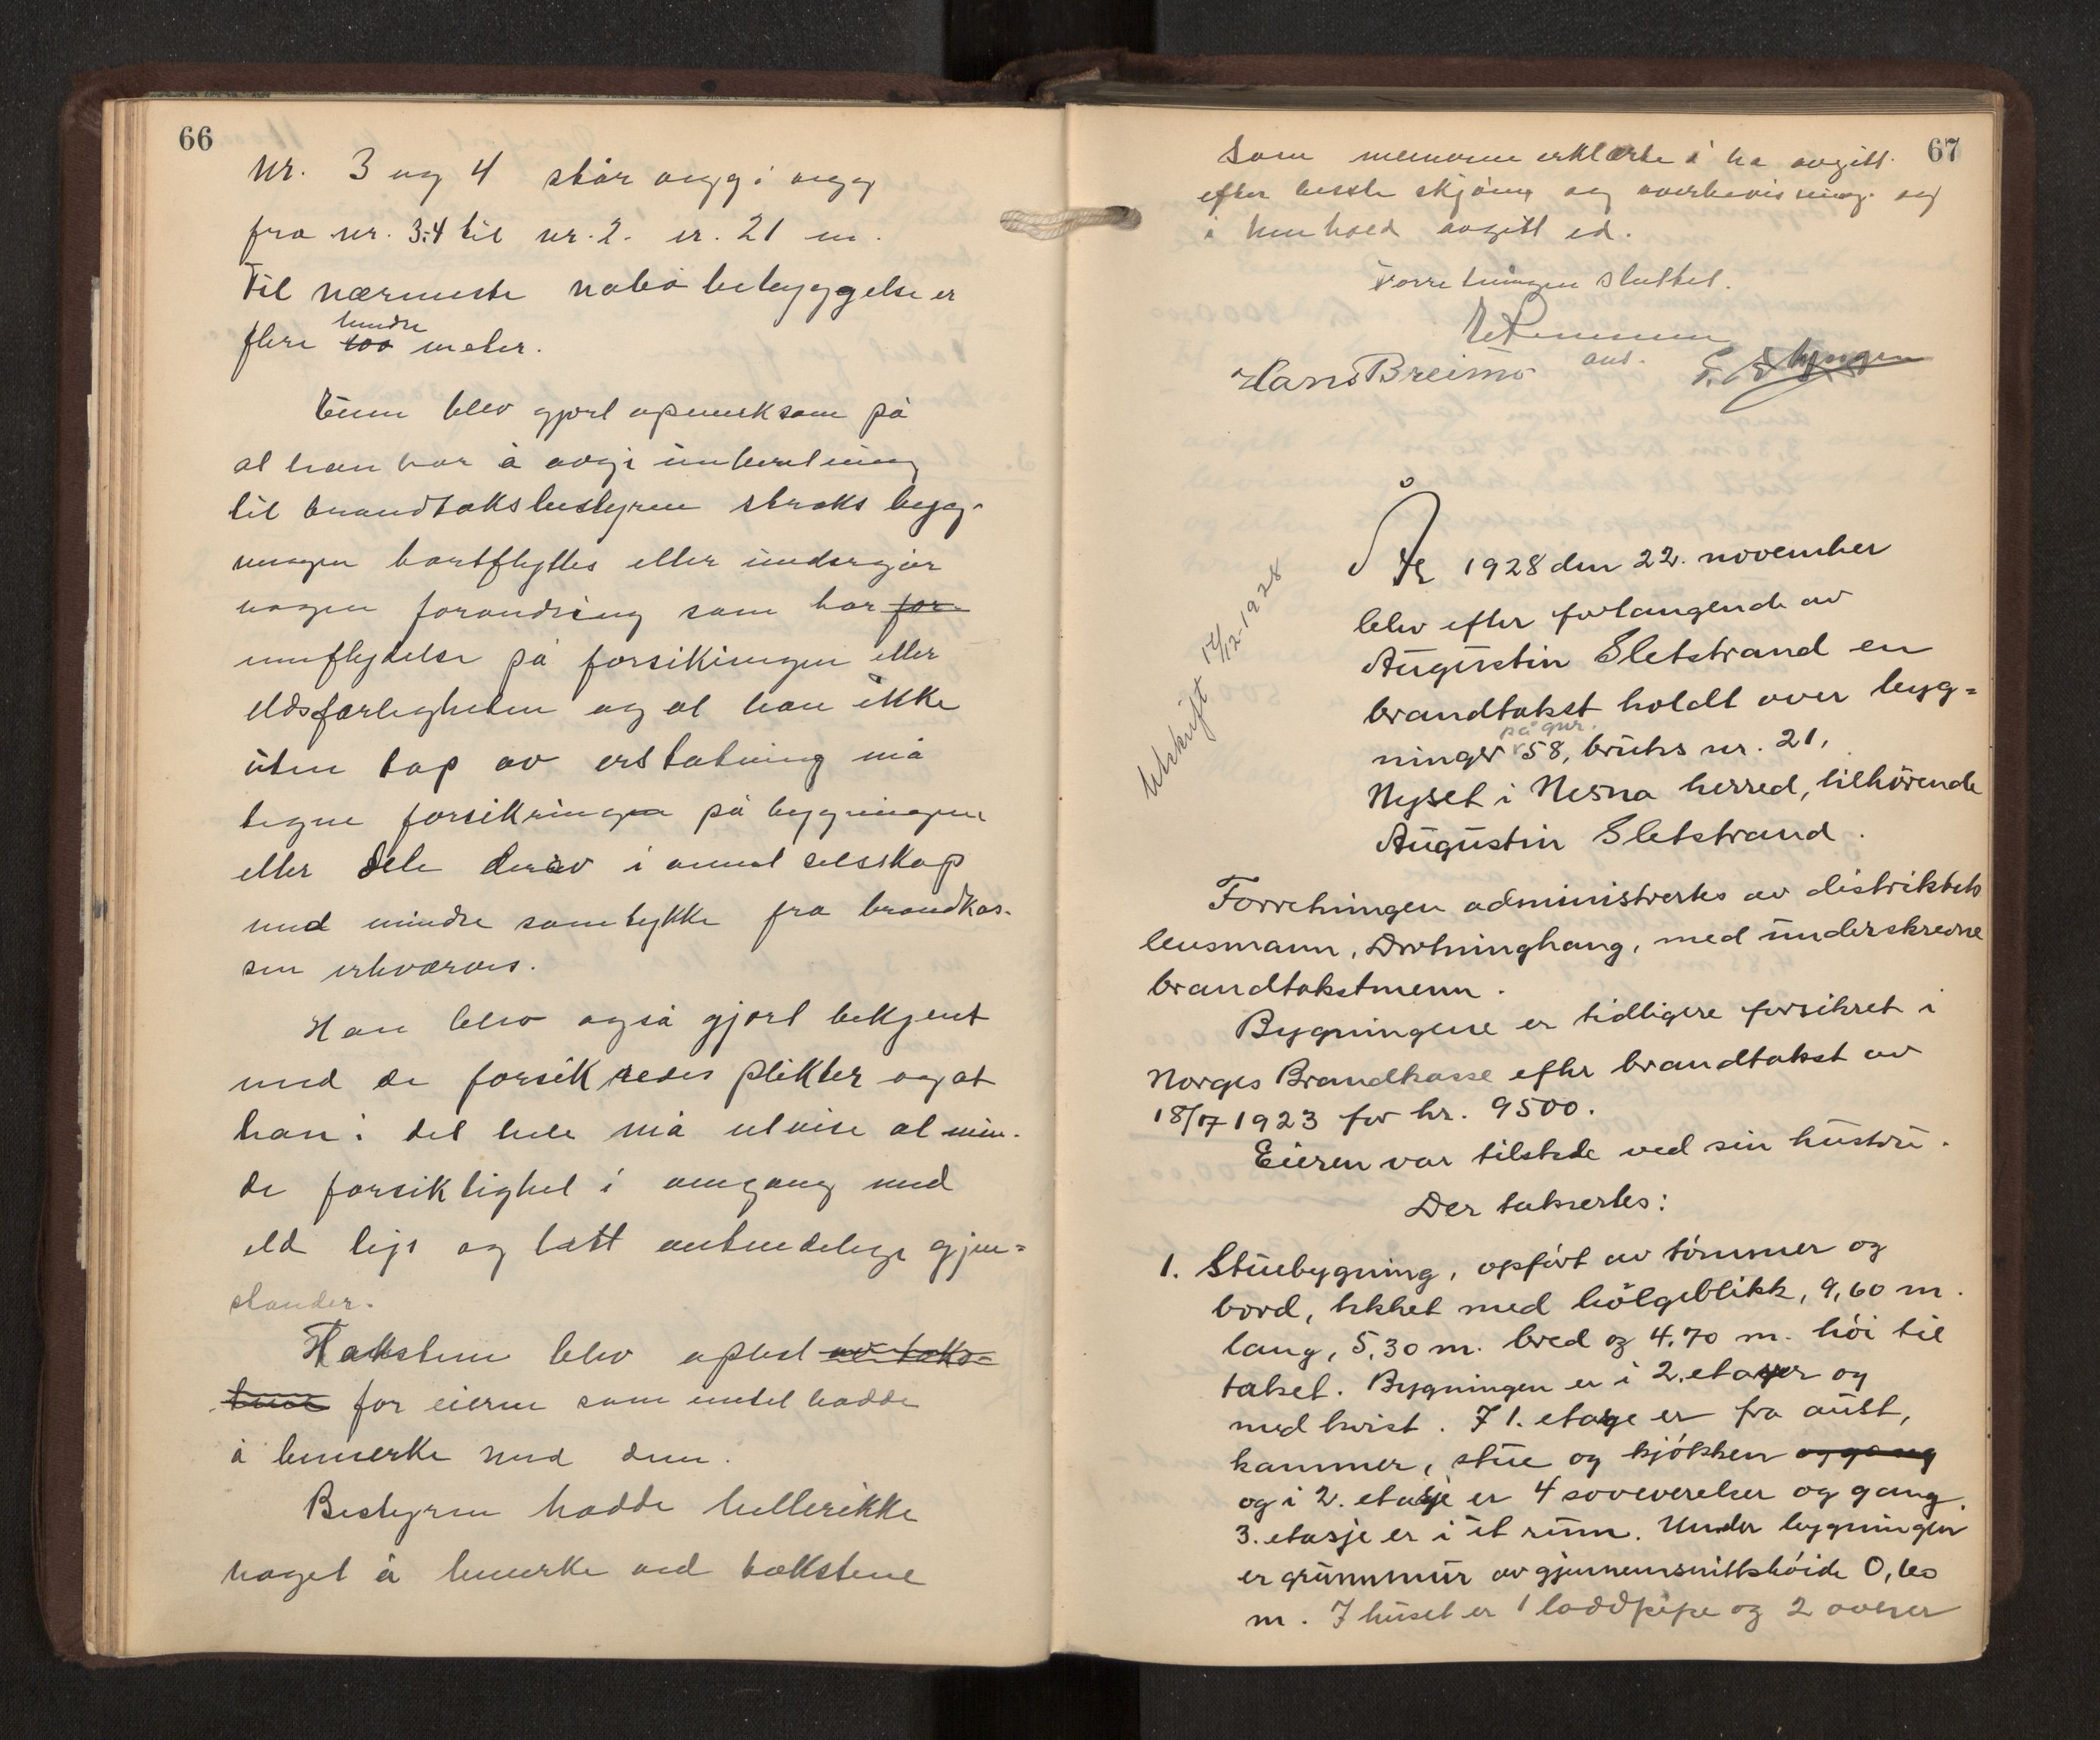 66
Nr. 3 og 4 står vegg i vegg
fra nr. 3-4 til nr. 2. er. 21 m.
Til nærmeste nabobebyggelse er
hundre
flere 100 meter.
Eieren blev gjort opmerksom på
at han har å avgi innberetning
til brandtakstbestyren straks byg-
ningen bortflyttes eller undergår
nogen forandring som har for-
innflydelse på forsikringen eller
eldsfarligheten og at han ikke
uten tap av erstatning må
tegne forsikringen på bygningene
eller dele derav i annet selsskap
med mindre samtykke fra brandkas-
sen erhverves.
Han blev også gjort bekjent
med de forsikredes plikter og at
han i det hele må utvise al min-
de forsiktighet i omgang med
eld lys og lætt antendelige gjen=
stander.
Takstene blev oplest av takst-
tene for eieren som intet hadde
å bemerke med dem.
Bestyren hadde heller ikke
noget å bemerke ved takstene
67
som mennene erklærte å ha avgitt
efter beste skjønn og overbevisning og
i henhold avgitt ed.
Forretningen sluttet.
Hans Breimo
Utskrift 17/12-1928
År 1928 den 22. november
blev efter forlangende av
Augustin Sletstrand en
brandtakst holdt over byg=
på gnr.
ninger 58, bruks nr. 21,
Nyset i Nesna herred, tilhörende
Augustin Sletstrand.
Forretningen administrertes av distriktets
lensmann, Drotninghaug, med underskrevne
brandtakstmenn.
Bygningene er tidligere forsikret i
Norges Brandkasse efter brandtakst av
18/7 1923 for kr. 9500.
Eieren var tilstede ved sin hustru.
Der taksertes:
1. Stuebygning, opført av tømmer og
bord, tekket med bölgeblikk, 9,60 m.
lang, 5,30 m. bred og 4.70 m. höi til
taket. Bygningen er i 2. etager og
med kvist. I 1. etasje er fra aust,
kammer, stue og kjökken og gang
og i 2. etasje er 4 soveverelser og gang.
3. etasje er i et rum. Under bygningen
er grunnmur av gjennemsnittshöide 0,60
m. I huset er 1 loddpipe og 2 ovner